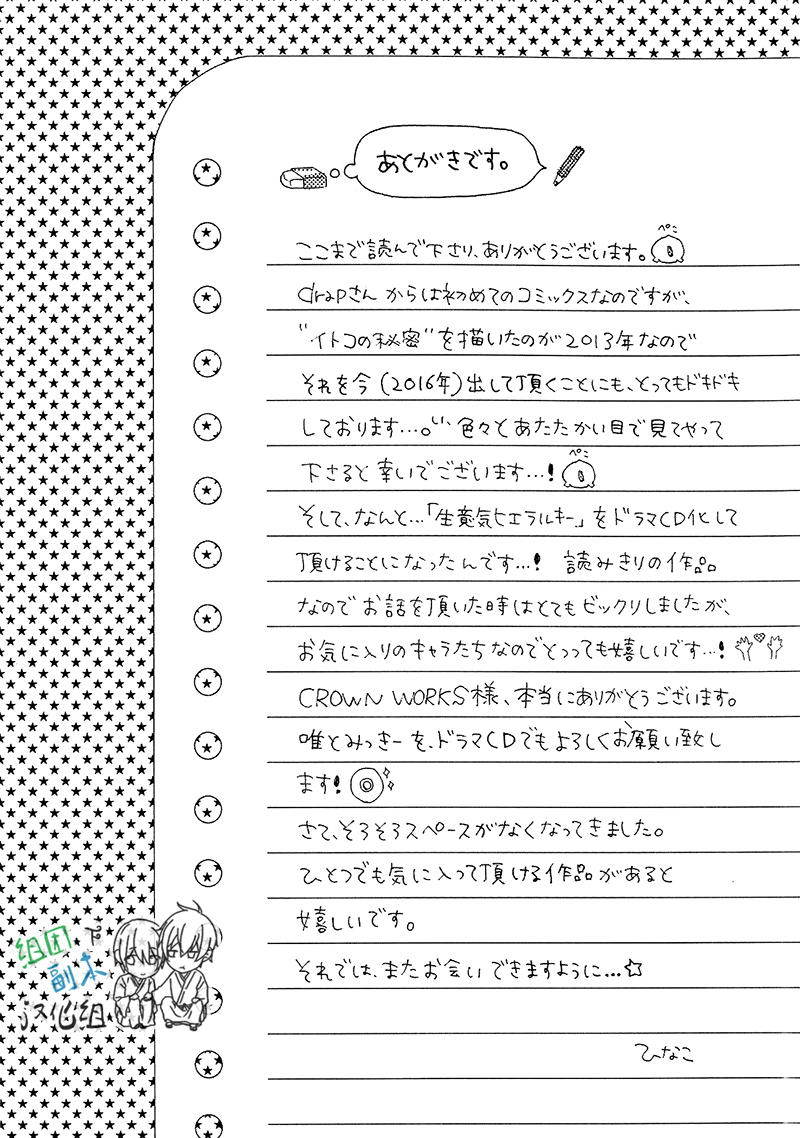 あとがきです。
ペこ
ここまで読んで下さり、ありがとうございます。
drapさんからは初めてのコミックスなのですが、
"イトコの秘密"を描いたのが2013年なので
それを今(2016年)出して頂くことにも、とってもドキドキ
しております…。色々とあたたかい目で見てやって
ペこ
下さると幸いでございます…!
そして、なんと…「生意気ヒエラルキー」をドラマCD化して
頂けることになったんです…! 読みきりの作品
なのでお話を頂いた時はとてもビックリしましたが、
お気に入りのキャラたちなのでとっっても嬉しいです…!
CROWN WORKS様、本当にありがとうございます。
唯とみっきーを、ドラマCDでもよろしくお願い致し
ます!
さて、そろそろスペースがなくなってきました。
ひとつでも気に入って頂ける作品があると
嬉しいです。
それでは、またお会いできますように…☆
ひなこ
组团下
副本
汉化组